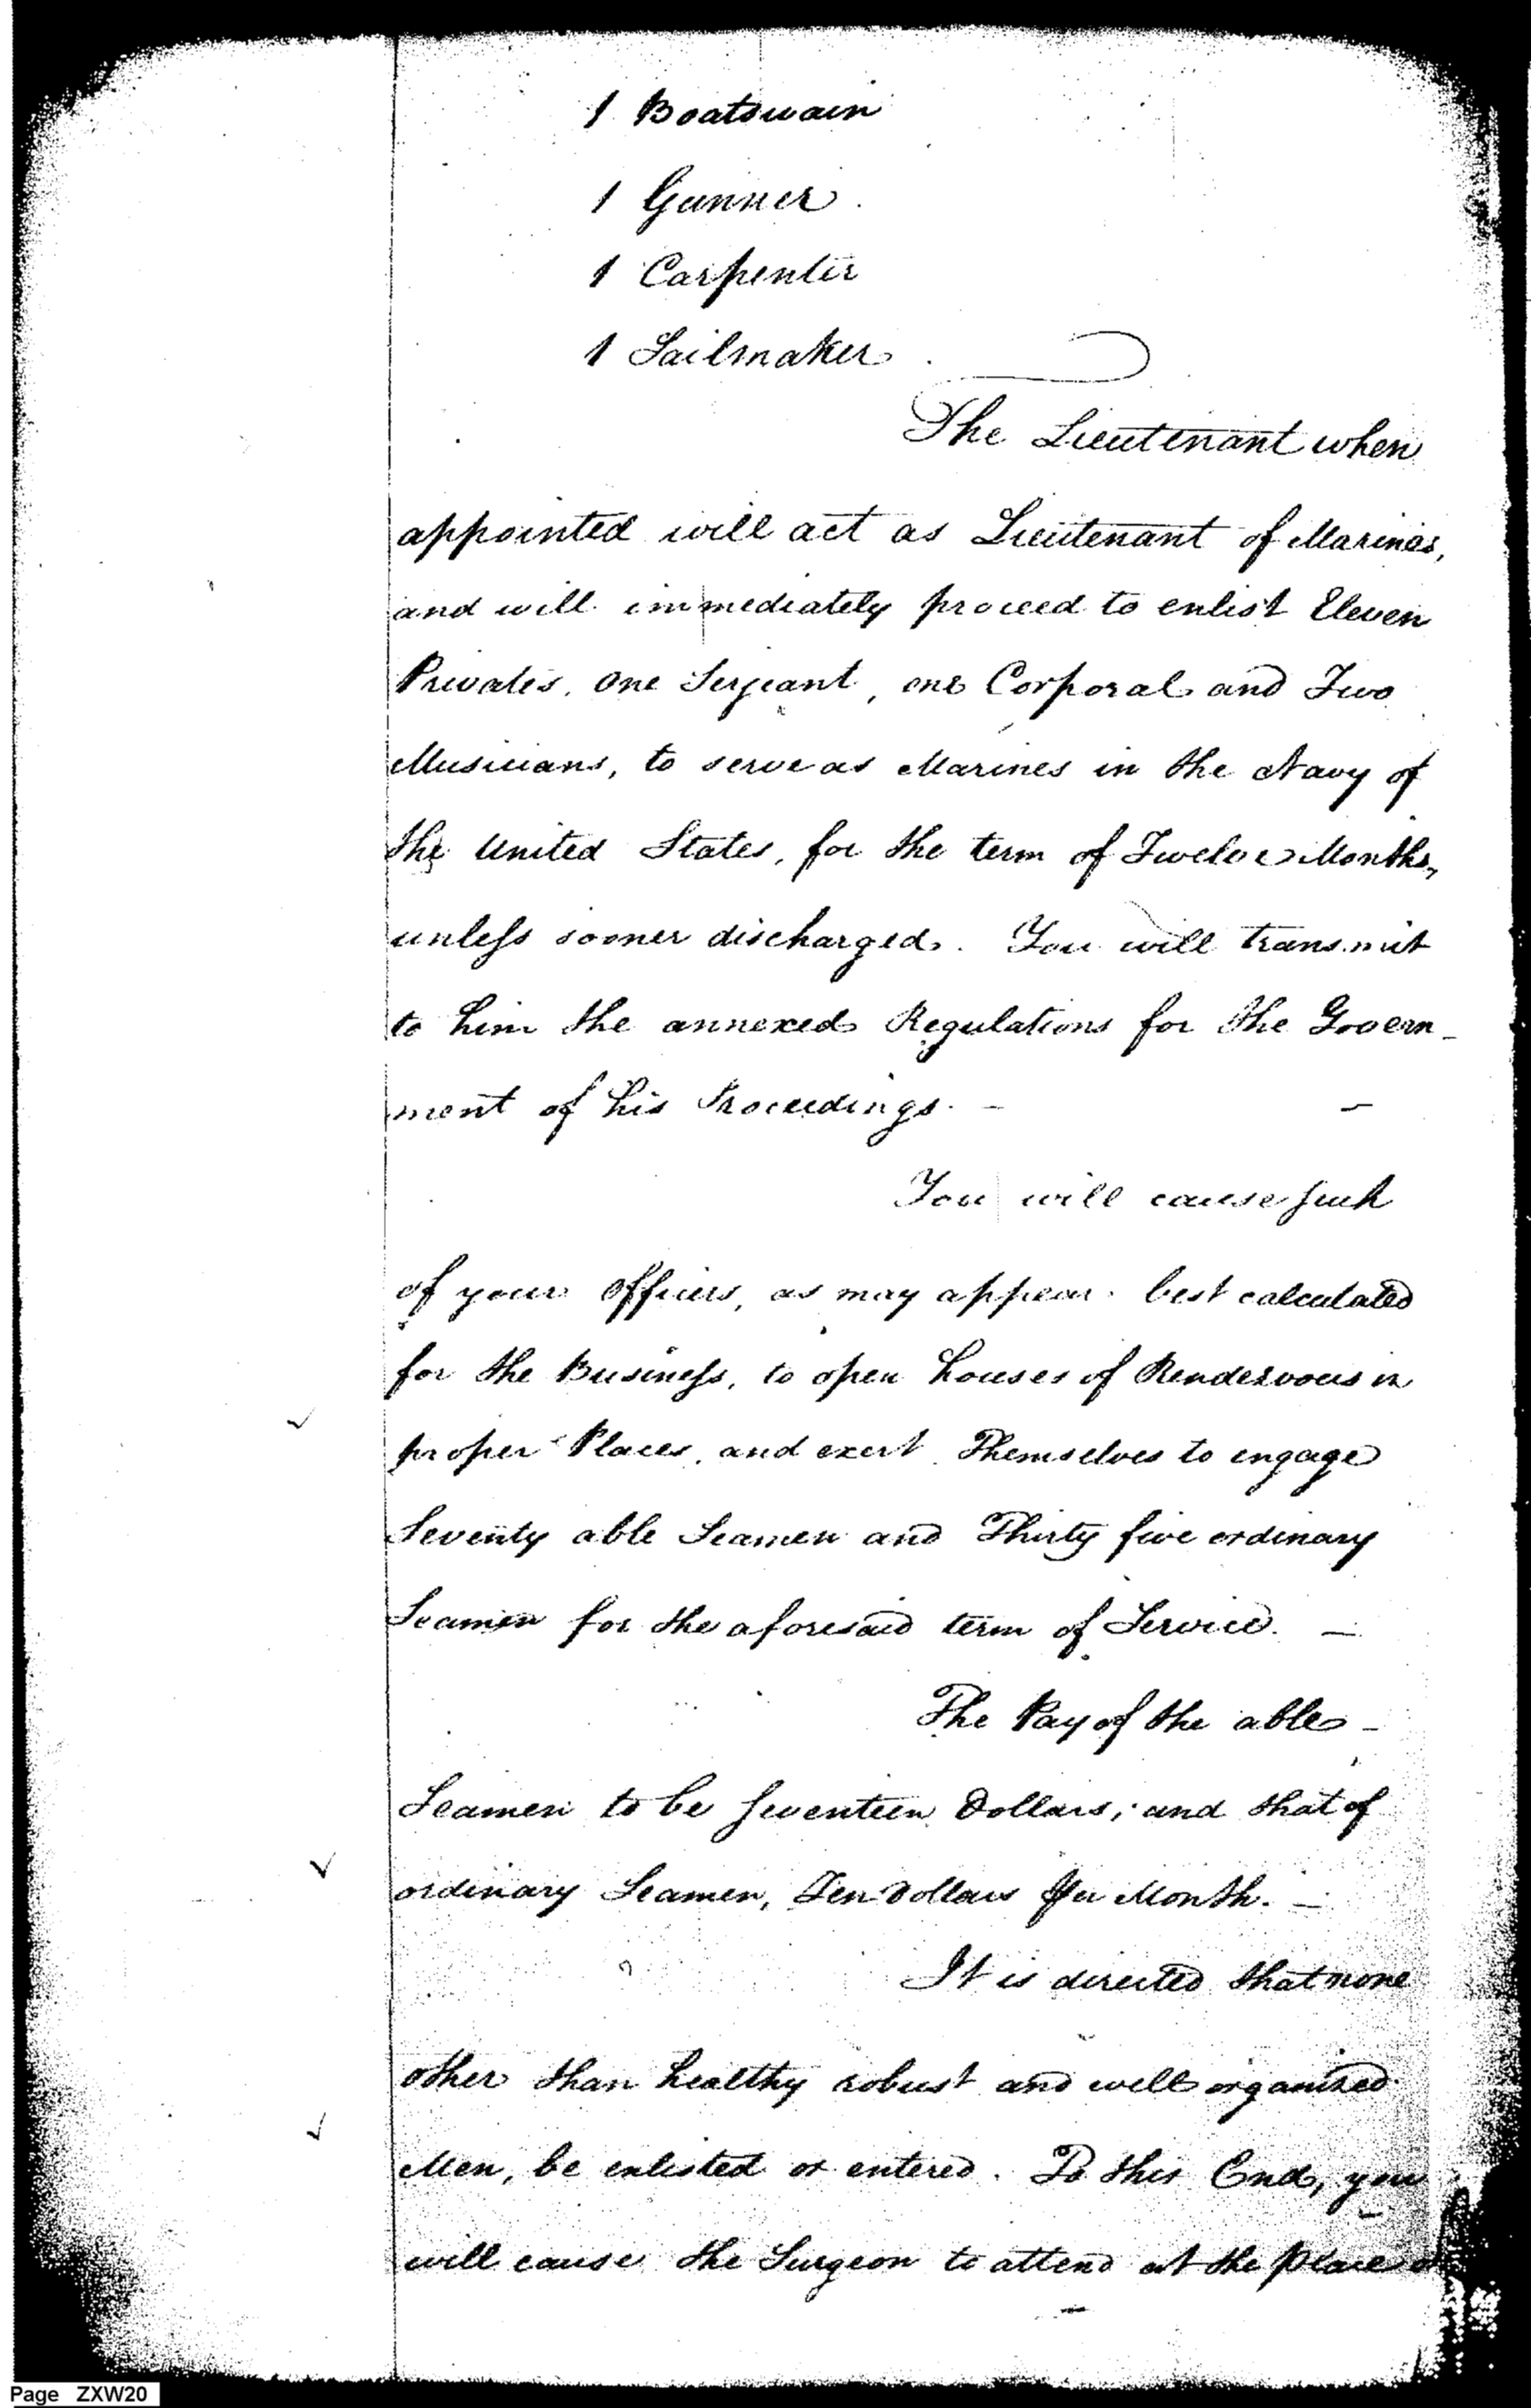 1 Boatswain
1 Gunner
1 Carpenter
1 Sailmaker
The Lieutenant when
appointed will act as Lieutenant of Marines,
and will immediately proceed to enlist Eleven
Privates, one Serjeant, one Corporal and Two
Musicians, to serve as Marines in the Navy of
the United States, for the term of Twelve Months,
unless sooner discharged. You will transmit
to him the annexed Regulations for the Govern-
ment of his Proceedings. -
You will cause such
of your Officers, as may appear best calculated
for the Business, to open houses of Rendezvous in
proper Places, and exert Themselves to engage
Seventy able Seamen and Thirty five ordinary
Seamen for the aforesaid term of Service. —
The Pay of the able -
Seamen to be Seventeen Dollars; and that of
ordinary Seamen, Ten Dollars Per Month. —
It is directed that none
other than healthy robust and well organized
Men, be enlisted or entered. To this End, you
will cause the Surgeon to attend at the place
Page ZXW20